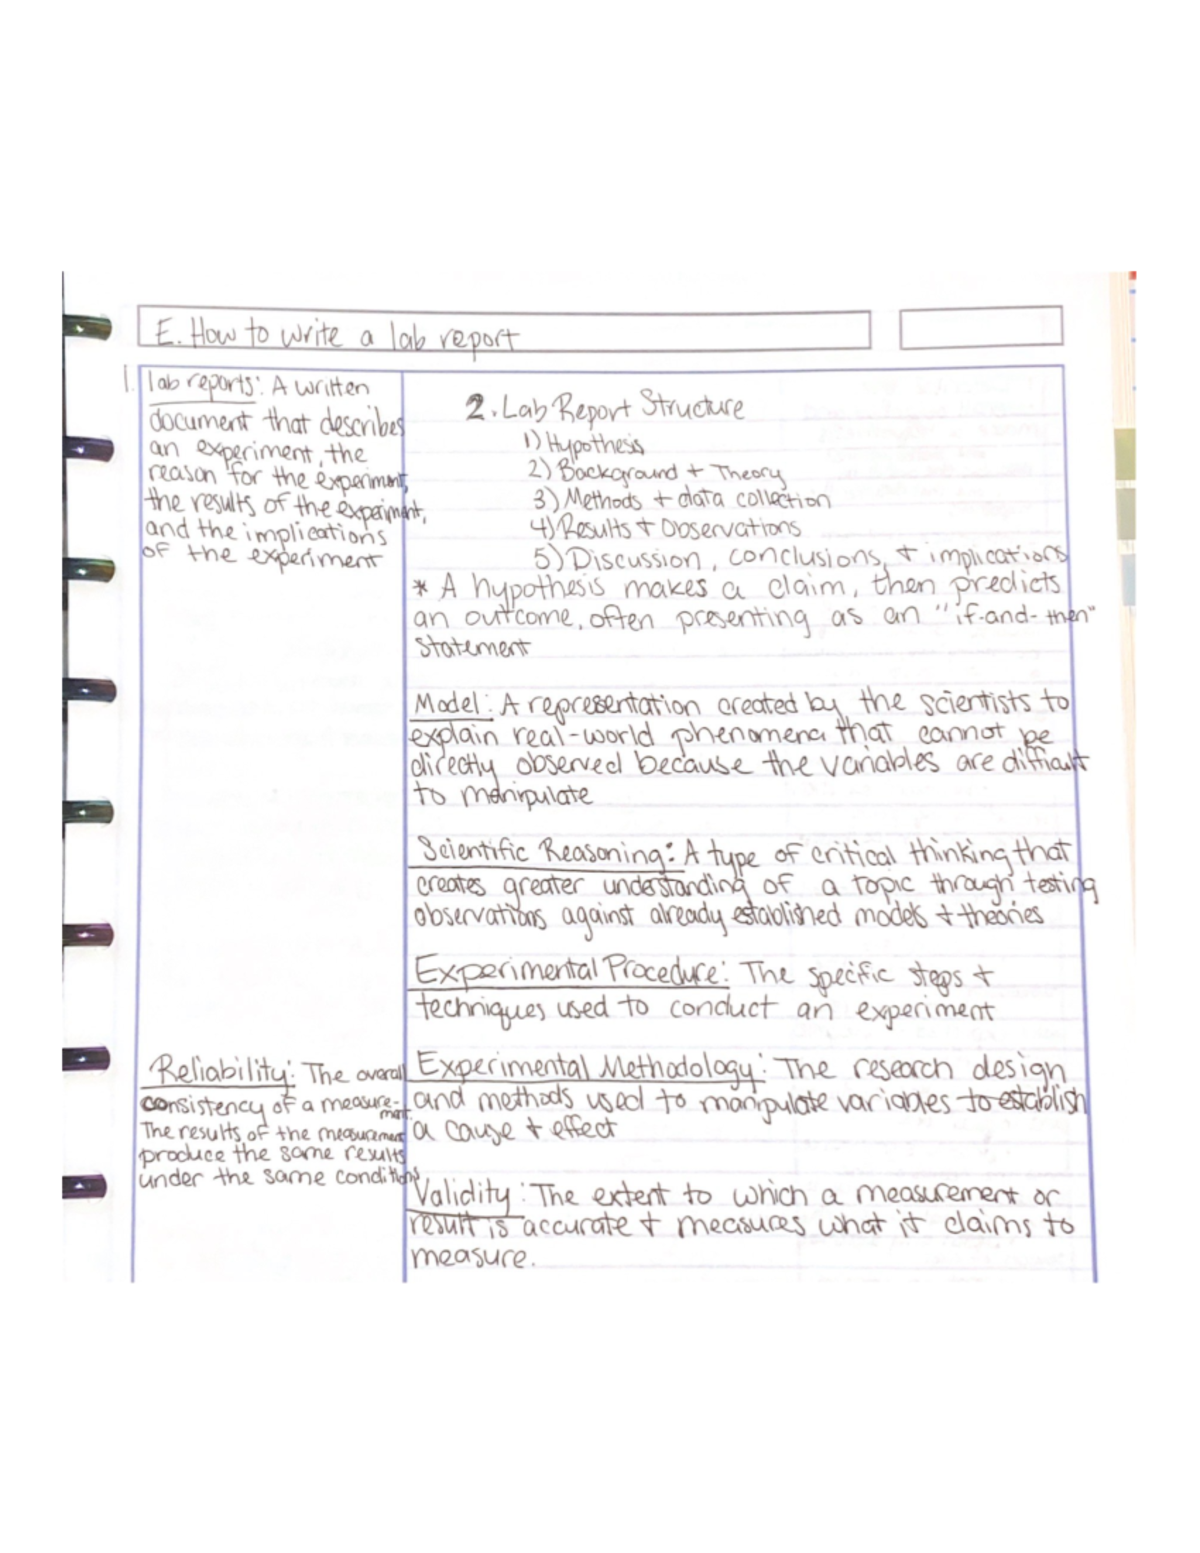 E. How to write a lab report
1. lab reports: A written
document that describes
an experiment, the
reason for the experiment,
the results of the experiment,
and the implications
of the experiment
2. Lab Report Structure
1) Hypothesis
2) Background + Theory
3) Methods + data collection
4) Results + Observations
5) Discussion, conclusions, + implications
* A hypothesis makes a claim, then predicts
an outcome, often presenting as an "if-and-then"
statement
Model: A representation created by the scientists to
explain real-world phenomena that cannot be
directly observed because the variables are difficult
to manipulate
Scientific Reasoning: A type of critical thinking that
creates greater understanding of a topic through testing
observations against already established models + theories
Experimental Procedure: The specific steps +
techniques used to conduct an experiment
Reliability: The overall
consistency of a measure-
ment.
The results of the measurement
produce the same results
under the same conditions
Experimental Methodology: The research design
and methods used to manipulate variables to establish
a cause + effect
Validity: The extent to which a measurement or
result is accurate + measures what it claims to
measure.